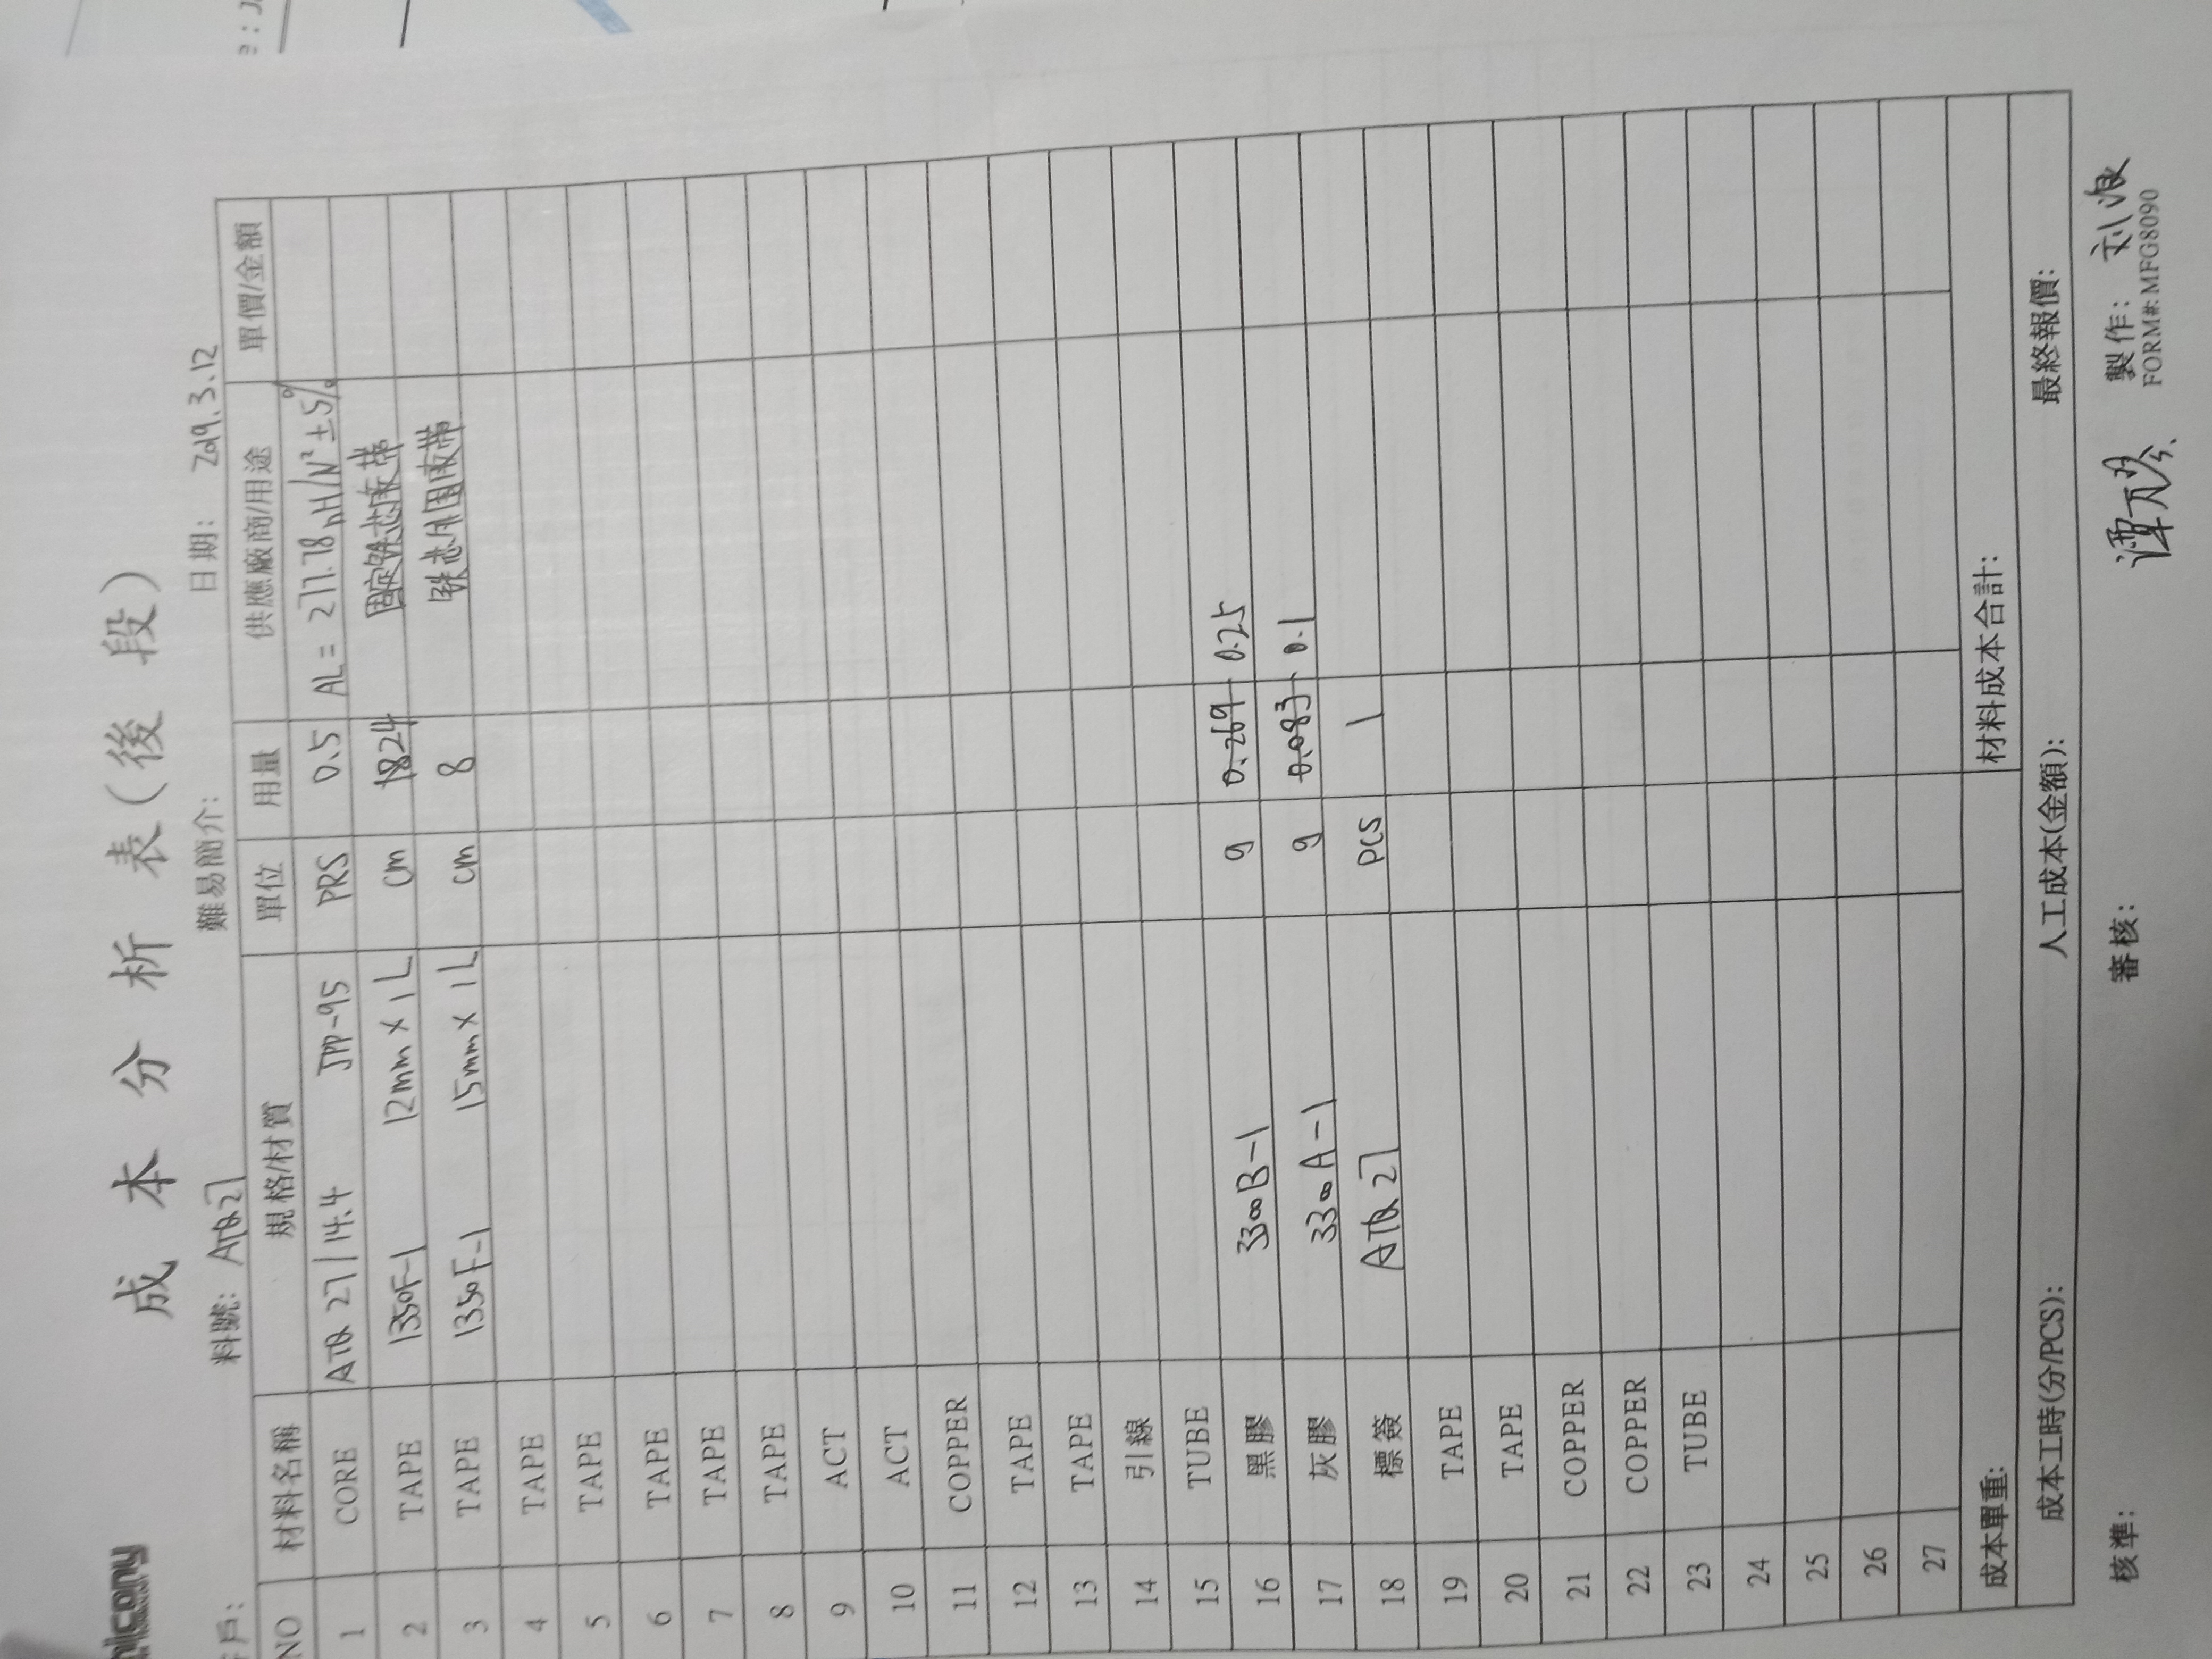 成 本 分 析 表(後 段)
戶: 料號: ATQ27 難易簡介: 日期: 2019.3.12
NO 材料名稱 規格/材質 單位 用量 供應廠商/用途 單價/金額
1 CORE ATQ 27/14.4 JPP-95 PRS 0.5 AL= 277.78 nH/N² ±5%
2 TAPE 1350F-1 12mm × 1L cm 固定铁芯胶带
3 TAPE 1350F-1 15mm × 1L cm 8 铁芯外围胶带
4 TAPE
5 TAPE
6 TAPE
7 TAPE
8 TAPE
9 ACT
10 ACT
11 COPPER
12 TAPE
13 TAPE
14 引線
15 TUBE
16 黑膠 3300B-1 g 0.269 0.25
17 灰膠 3300A-1 g 0.083 0.1
18 標簽 ATQ 27 PCS 1
19 TAPE
20 TAPE
21 COPPER
22 COPPER
23 TUBE
24
25
26
27
成本單重: 材料成本合計:
成本工時(分/PCS): 人工成本(金額): 最終報價:
核準: 審核: 製作: 刘浪
FORM#: MFG8090